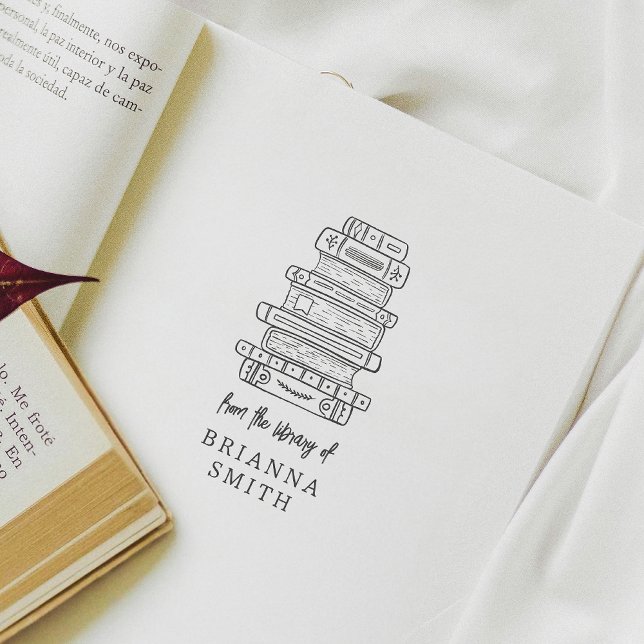 es y, finalmente, nos expo-
personal, la paz interior y la paz
realmente útil, capaz de cam-
oda la sociedad.
lo. Me froté
é, Inten-
?, En
from the library of
BRIANNA
SMITH